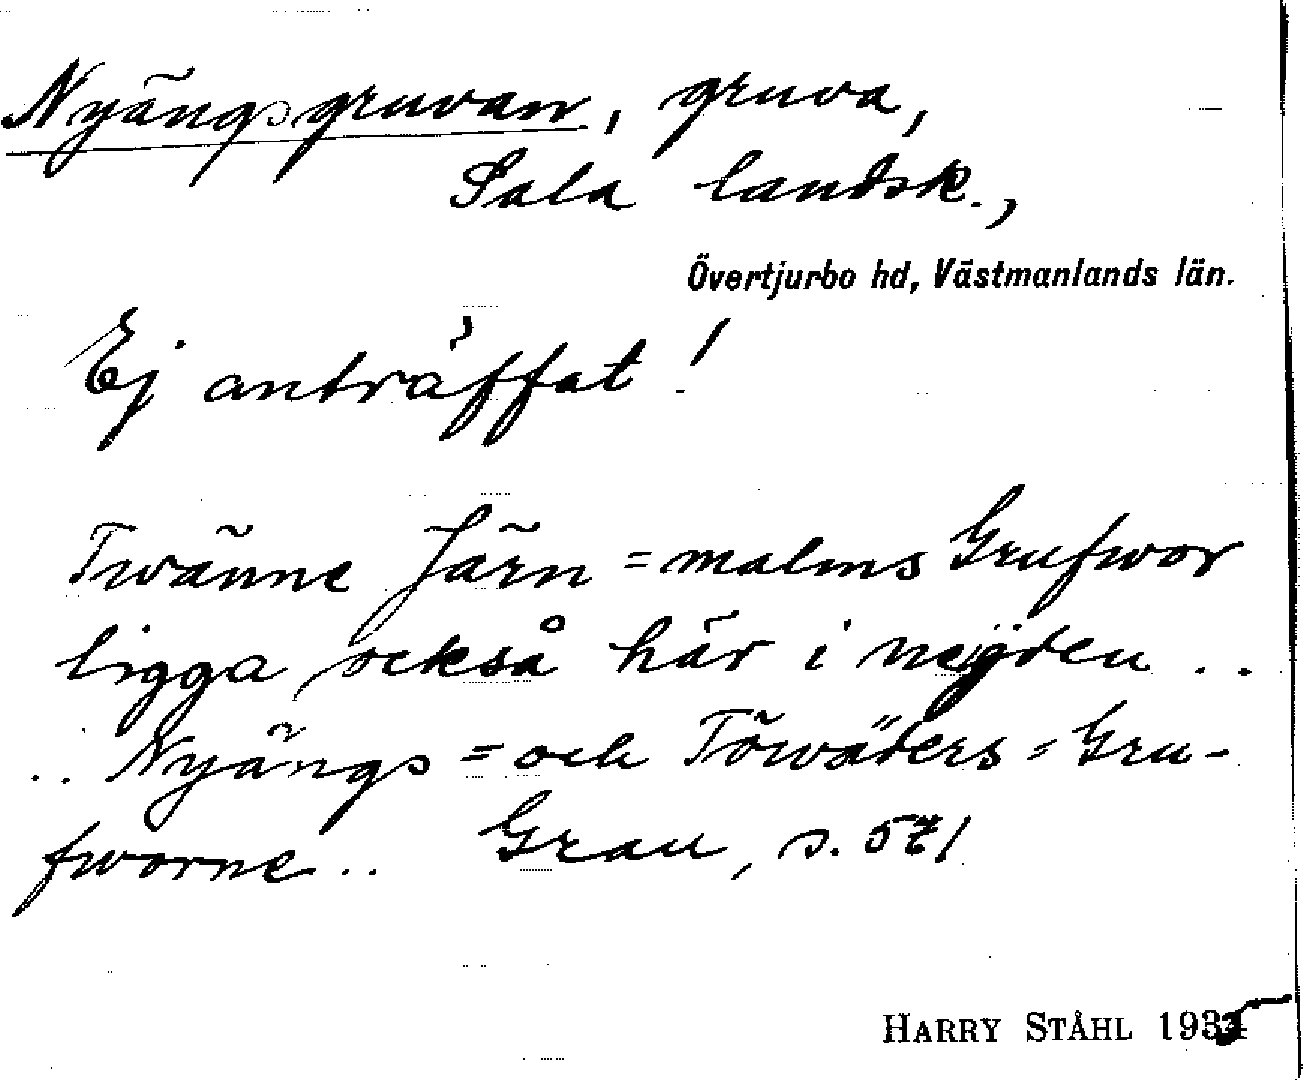 Nyängsgruvan, gruva,
Sala landsk.,
Övertjurbo hd, Västmanlands län.
Ej anträffat!
Twänne Järn=malms Grufwor
ligga också här i neyden . .
. . Nyängs= och Töwäders=Gru-
fworne . . Grau, s. 571
HARRY STÅHL 1935